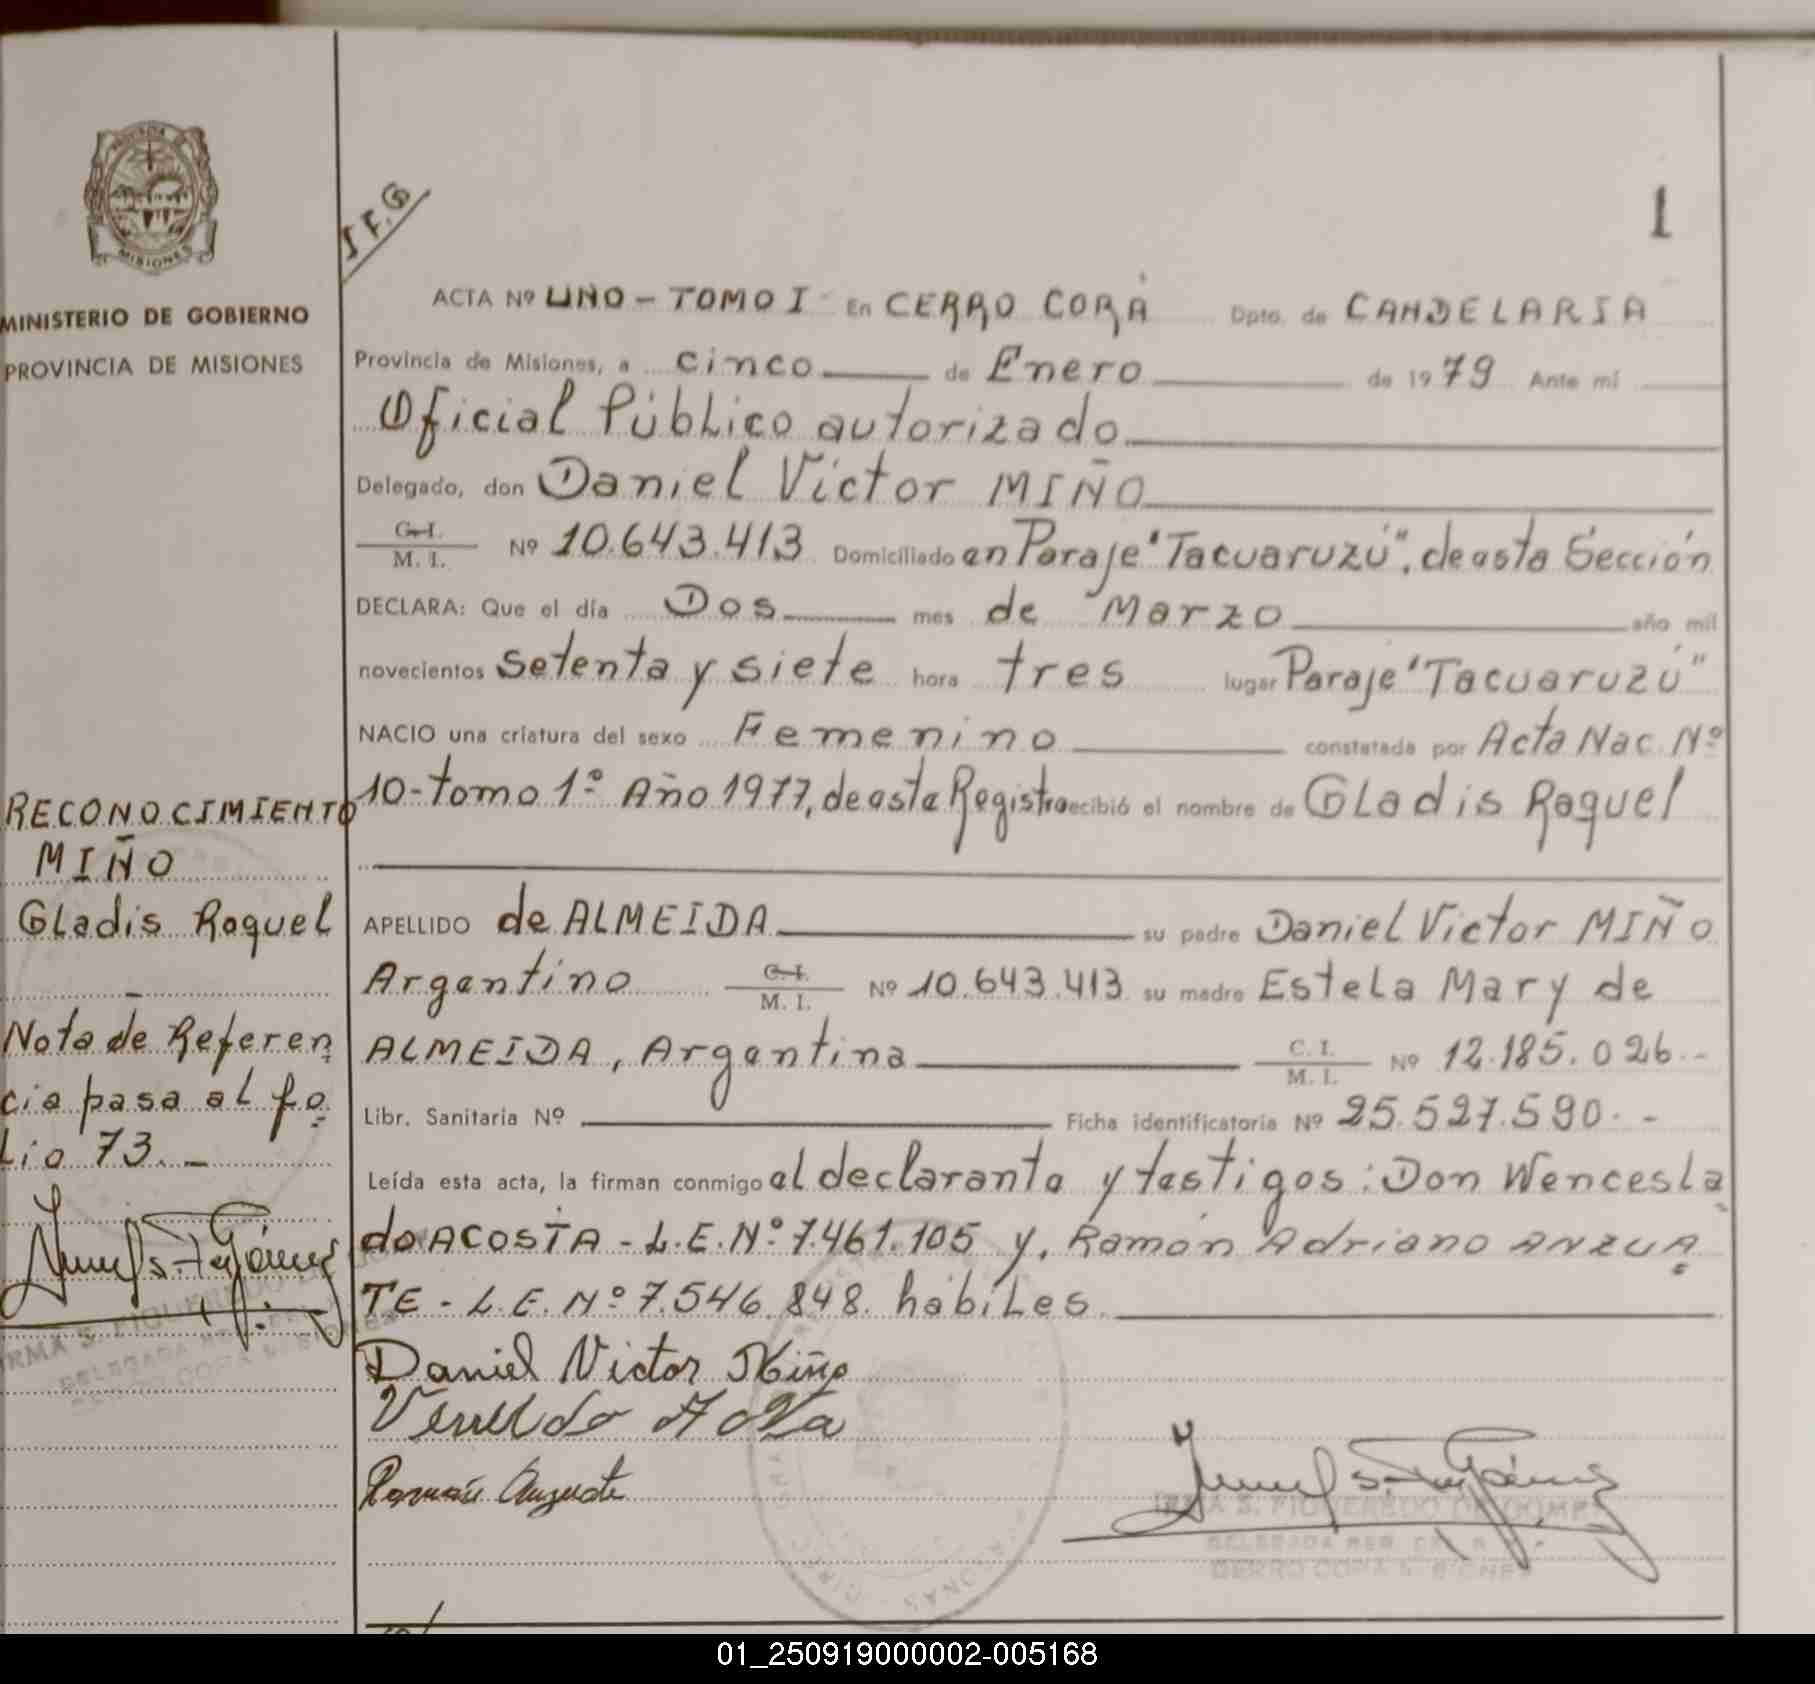 MISIONES
MINISTERIO DE GOBIERNO
PROVINCIA DE MISIONES
RECONOCIMIENTO
MIÑO
Gladis Raquel
Nota de Referen
cia pasa al fo
lio 73.-
I F.G
1
ACTA Nº UNO - TOMO I En CERRO CORÁ Dpto. de CANDELARIA
Provincia de Misiones, a cinco de Enero de 1979 Ante mí
Oficial Público autorizado
Delegado, don Daniel Victor MIÑO
C. I.
M. I. Nº 10.643.413 Domiciliado en Paraje "Tacuaruzú", de esta Sección
DECLARA: Que el día Dos mes de Marzo año mil
novecientos setenta y siete hora tres lugar Paraje "Tacuaruzú"
NACIO una criatura del sexo Femenino constatada por Acta Nac. Nº
10-tomo 1º Año 1977, de este Registro recibió el nombre de Gladis Raquel
APELLIDO de ALMEIDA su padre Daniel Victor MIÑO
Argentino C. I.
M. I. Nº 10.643.413 su madre Estela Mary de
ALMEIDA, Argentina C. I.
M. I. Nº 12.185.026.-
Libr. Sanitaria Nº Ficha identificatoria Nº 25.527.590.-
Leída esta acta, la firman conmigo el declarante y testigos: Don Wencesla
do ACOSTA - L.E. Nº 7.461.105 y, Ramón Adriano ANZUA
TE - L.E. Nº 7.546.848. hábiles
Daniel Victor Miño
IRMA S. FIGUEREDO DE GOMEZ
CERRO CORA
01_250919000002-005168